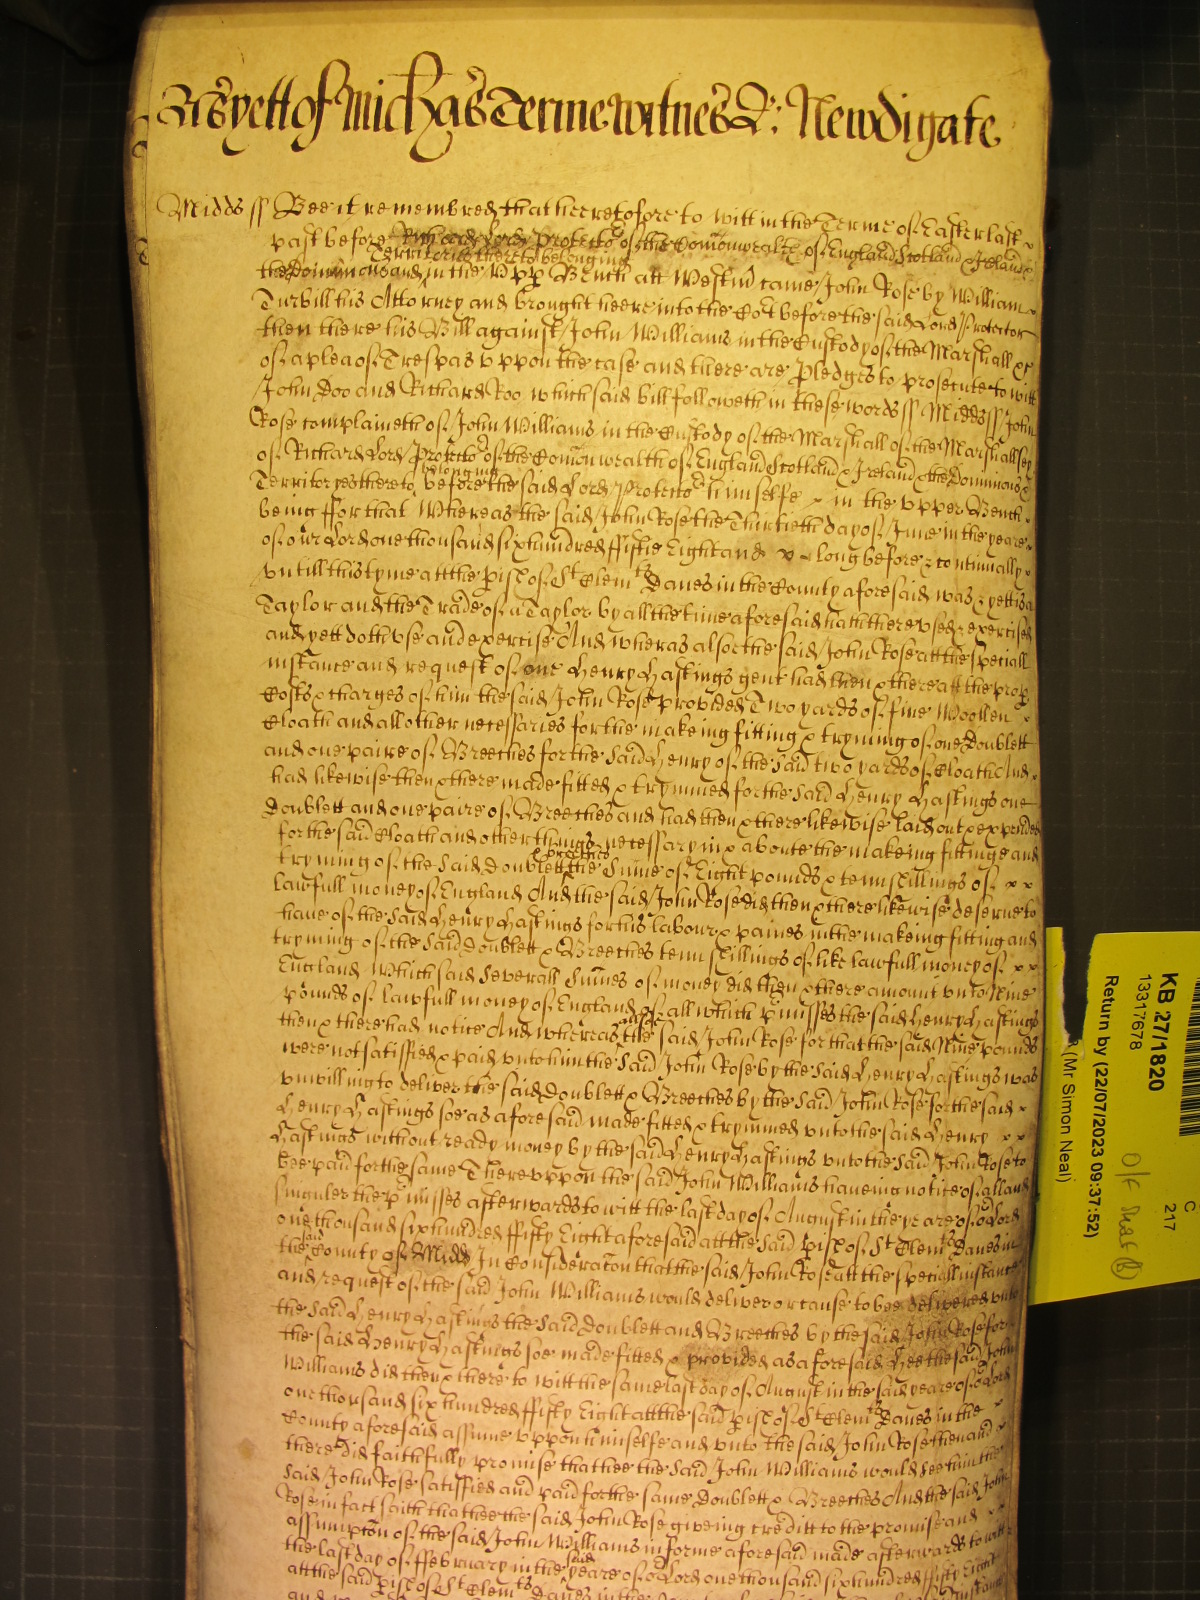 As yett of Mich'as Terme witnes R: Newdigate
Midds ss Bee it remembred that heeretofore to witt in the Terme of Easter last
past before Richard Lord Protector of the Comonwealth of England Scotland & Ireland &
Territories thereto belonging
the Dominions and in the Upp Bench att Westm came John Rose by William
Turbill his Attorney and brought heere into the Cort before the said Lord Protector
then there his Bill against John Williams in the Custody of the Marshall &c
of a plea of Trespas uppon the case and there are pledges to prosecute to witt
John Doo and Richard Roo which said bill followeth in these words ss Midds ss John
Rose complaineth of John Williams in the Custody of the Marshall of the Marshallsey
of Richard Lord Protector of the Comonwealth of England Scotland & Ireland & the Dominions &
belonging
Territoryes thereto before the said Lord Protector himselfe in the upper Bench
being ffor that Whereas the said John Rose the Thirtieth day of June in the yeare
of our Lord one thousand six hundred ffiftie Eight and long before & continually
untill this tyme att the pish of St Clemts Danes in the County aforesaid was & yett is a
Taylor and the Trade of a Taylor by all the time aforesaid hath there used & exercised
and yett doth use and exercise And wheras alsoe the said John Rose att the speciall
instance and request of one Henry Hastings gent had then & there att the prop
Costs & charges of him the said John Rose provided Two yards of fine Woollen
Cloath and all other necessaries for the makeing fitting & tryming of one Doublett
and one paire of Breeches for the said Henry of the said two yards of Cloath And
had likewise then & there made fitted & trymmed for the said Henry Hastings one
Doublett and one paire of Breeches and had then & there likewise laid out & expended
for the said Cloath and other things necessary in & aboute the makeing fittinge and
& breeches
tryming of the said Doublett the Sume of Eight pounds & tenn shillings of
lawfull money of England And the said John Rose did then & there likewise deserve to
have of the said Henry Hastings for his labour & paines in the makeing fitting and
tryming of the said Doublett & Breeches tenn shillings of like lawfull money of
England Which said severall sumes of money did then & there amount unto Nine
pounds of lawfull money of England of all which pmisses the said Henry Hastings
then & there had notice And whereas the said John Rose for that the said Nine pounds
were not satisfied & paid unto him the said John Rose by the said Henry Hastings was
unwilling to deliver the said Doublett & Breeches by the said John Rose for the said
Henry Hastings soe as aforesaid made fitted & trymmed unto the said Henry
Hastings without ready money by the said Henry Hastings unto the said John Rose to
bee paid for the same Thereuppon the said John Williams haveing notice of all and
singuler the pmisses afterwards to witt the last day of August in the yeare of or Lord
one thousand six hundred ffifty Eight aforesaid att the said pish of St Clemts Danes in
said
the County of Midds In Consideracon that the said John Rose att the speciall instance
and request of the said John Williams would deliver or cause to bee delivered unto
the said Henry Hastings the said Doublett and Breeches by the said John Rose for
the said Henry Hastings soe made fitted & provided as aforesaid Hee the said John
Williams did then & there to witt the same last day of August in the said yeare of or Lord
one thousand six hundred ffifty Eight att the said pish of St Clemts Danes in the
County aforesaid assume uppon himselfe and unto the said John Rose then and
there did faithfully promise that hee the said John Williams would see him the
said John Rose satisfied and paid for the same Doublett & Breeches And the said John
Rose in fact saith that hee the said John Rose giveing creditt to the promise and
assumpcon of the said John Williams in forme aforesaid made afterwards to witt
said
the last day of ffebruary in the yeare of or Lord one thousand six hundred ffifty Eight
att the said pish of St Clemts Danes in the
KB 27/1820
13317678
Return by (22/07/2023 09:37:52)
(Mr Simon Neal)
C
217
O/F Shelf (B)